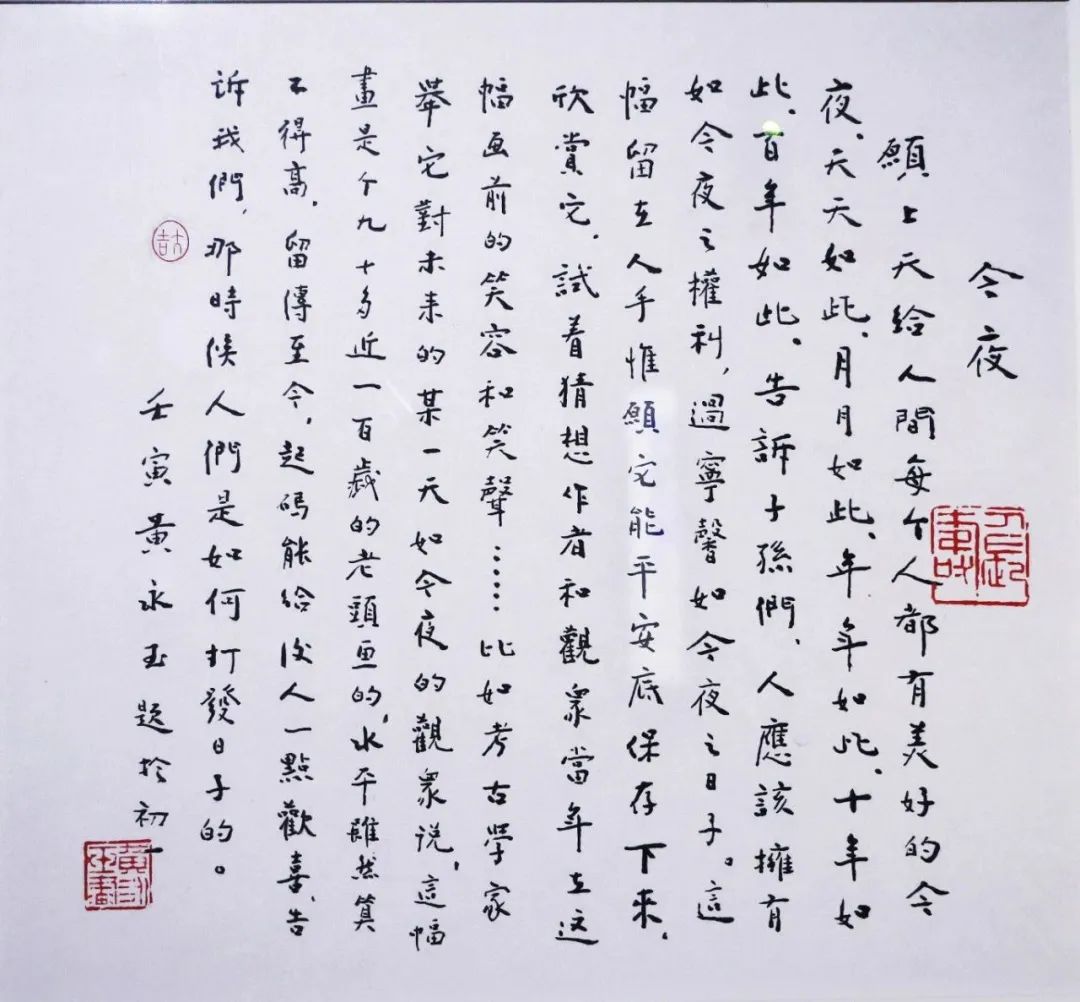 今夜
願上天给人間每个人都有美好的今
夜、天天如此、月月如此、年年如此、十年如
此、百年如此、告訴子孫們、人應該擁有
如今夜之權利，過寧馨如今夜之日子。這
幅留在人手惟願它能平安底保存下來、
欣賞它、試着猜想作者和觀衆當年在这
幅画前的笑容和笑聲……比如考古學家
舉它對未来的某一天如今夜的觀衆说，這幅
畫是个九十多近一百歲的老頭画的，水平雖然算
不得高、留傳至今，起碼能给後人一點歡喜、告
訴我們，那時候人們是如何打發日子的。
壬寅黄永玉題於初一